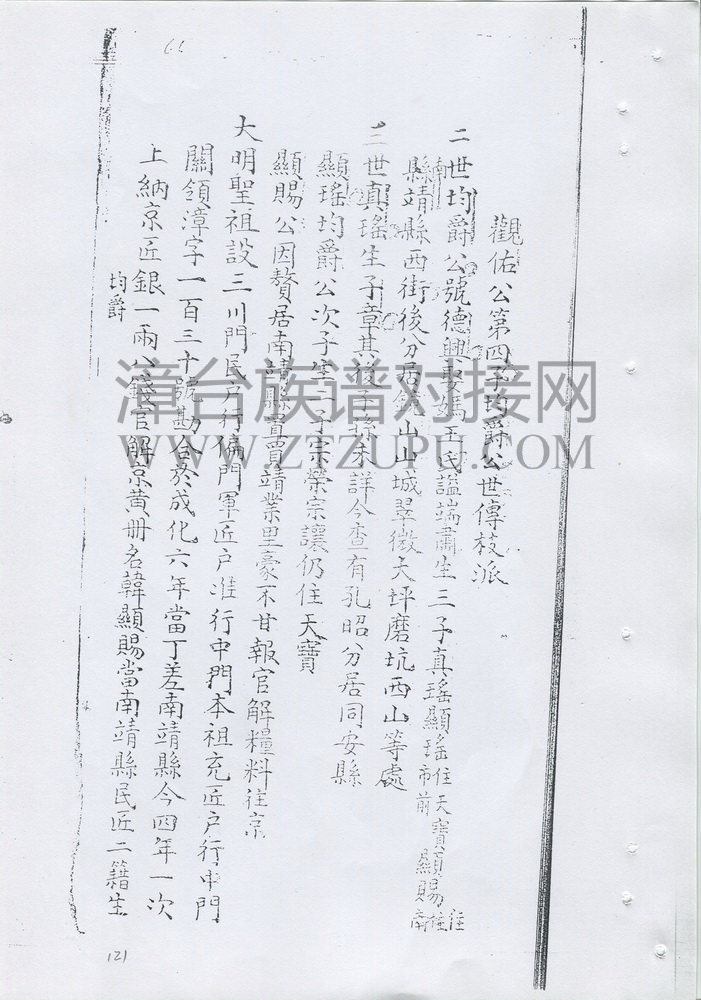 66
觀佑公第四子均爵公世傳枝派
二世均爵公號德興娶媽王氏謚端肅生三子真瑤顯瑤住天寶市前顯賜住南
縣靖縣西街後分居 山山城翠微大坪磨坑西山等處
三世真瑤生子章其後子孫未詳今查有孔昭分居同安縣
顯瑤均爵公次子生二子宗榮宗讓仍住天寶
顯賜公因贅居南靖縣置買靖業里豪不甘報官解糧料往京
大明聖祖設三川門民戶行偏門軍匠戶准行中門本祖充匠戶行中門
關領漳字一百三十號勘合於成化六年當丁差南靖縣今四年一次
上納京匠銀一兩八錢官解京黃冊名韓顯賜當南靖縣民匠二籍生
均爵
121
漳台族谱对接网
WWW.ZTZUPU.COM